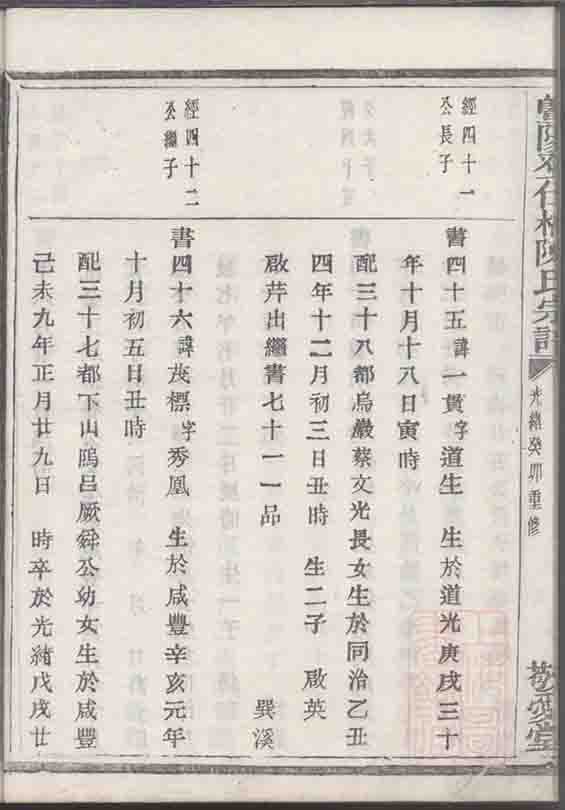 陳氏宗譜
光緒癸卯重修
敬愛堂
經四十一
公長子
書四十五諱一貫字道生 生於道光庚戌三十
年十月十八日寅時
配三十八都烏巖蔡文光長女生於同治乙丑
四年十二月初三日丑時 生二子 啟英
啟芹出繼書七十一一品 巽溪
經四十二
公繼子
書四十六諱茂標字秀凰 生於咸豐辛亥元年
十月初五日丑時
配三十七都下山隝呂厥舜公幼女生於咸豐
己未九年正月廿九日 時卒於光緒戊戌廿